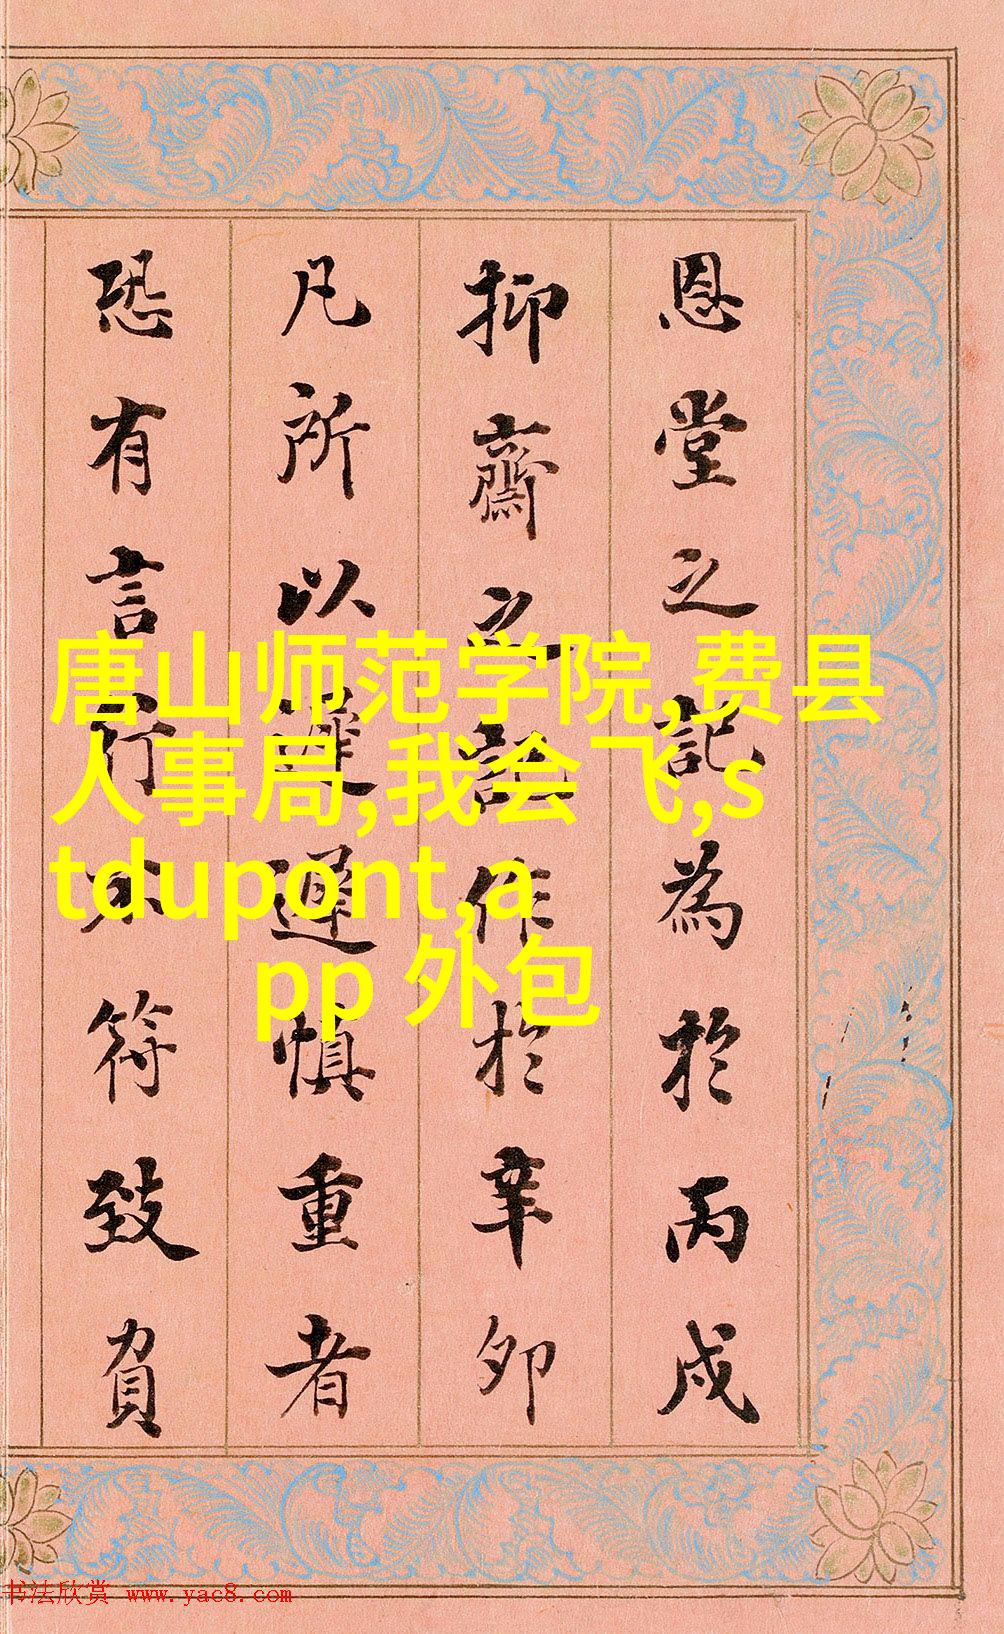 恩堂之記為於丙戌
抑齋之記作於辛卯
凡所以遲遲慎重者
恐有言行不符致負
唐山师范学院,费县
人事局,我会飞,s
tdupont,a
pp 外包
书法欣赏 www.yac8.com